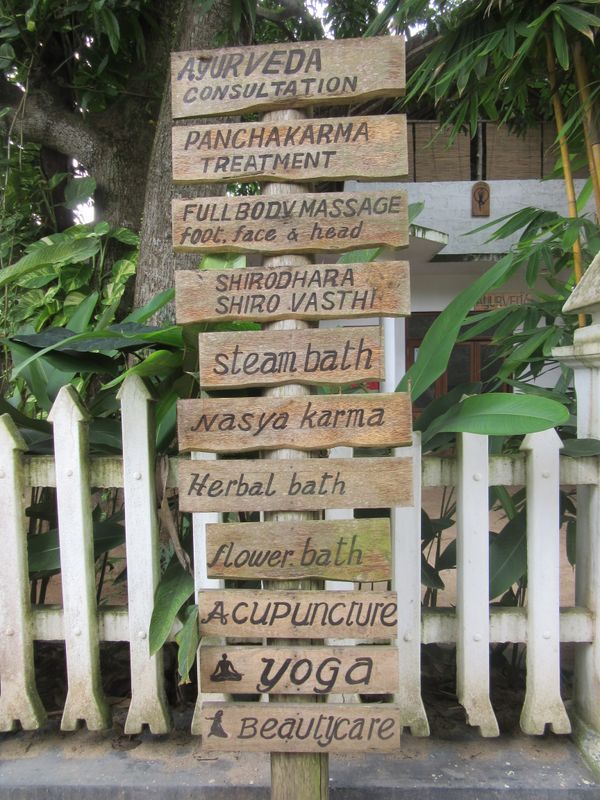 AYURVEDA
CONSULTATION
PANCHAKARMA
TREATMENT
FULLBODY MASSAGE
foot, face & head
SHIRODHARA
SHIRO VASTHI
steam bath
Nasya karma
Herbal bath
flower bath
ACUPUNCTURE
YOGA
BEAUTYCARE